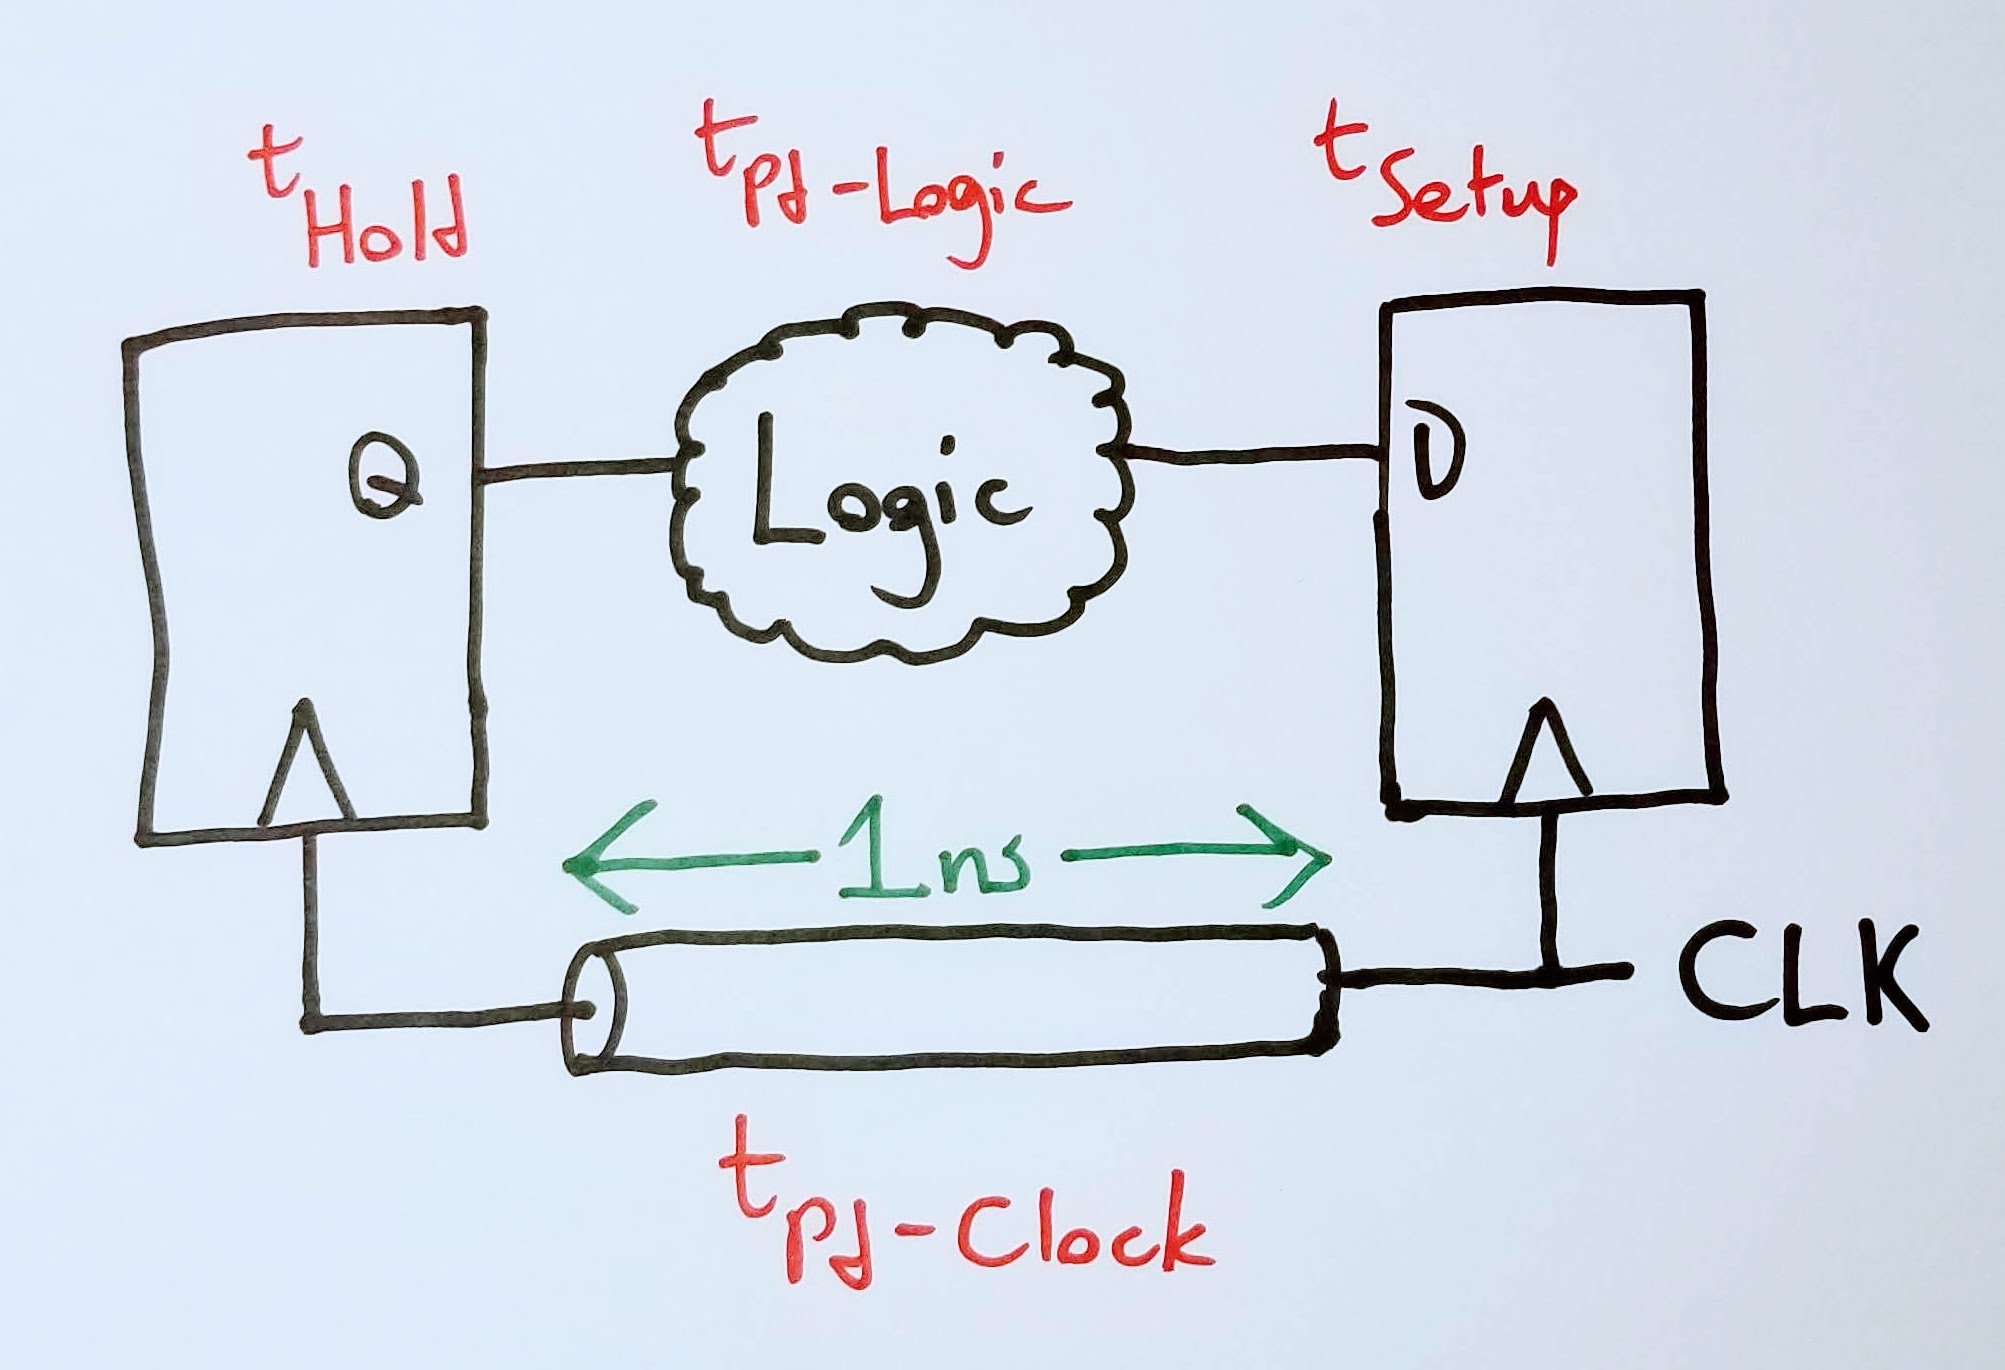 tHold
tPd-Logic
tSetup
Q
Logic
D
1ns
CLK
tPd-Clock